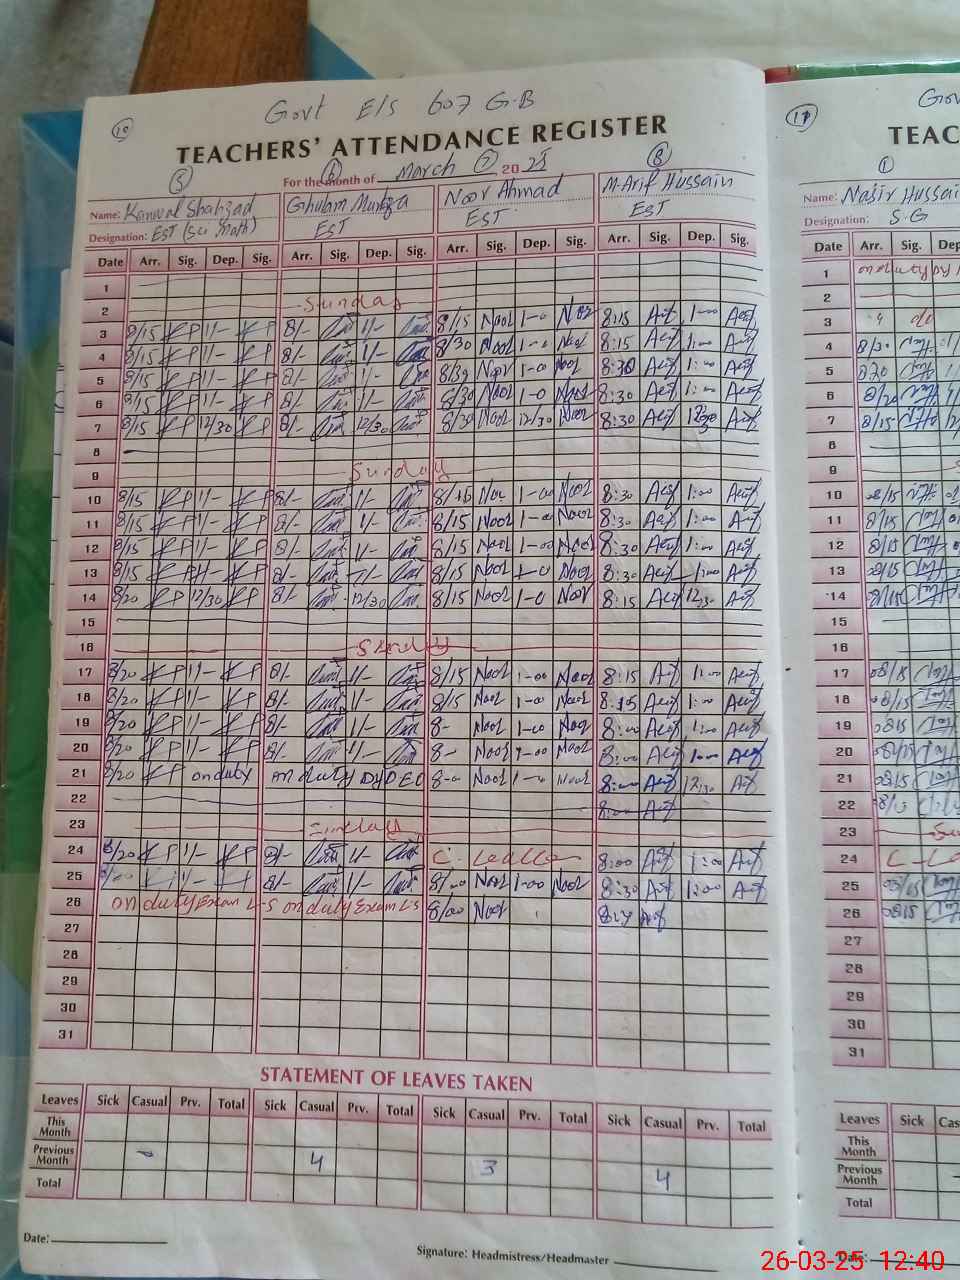 Govt E/S 607 G.B
10
TEACHERS' ATTENDANCE REGISTER
For the month of March 2025
5 6 7 8
Name: Kanwal Shahzad Ghulam Murtaza Noor Ahmad M. Arif Hussain
Designation: EST (Sci Math) EST EST EST
Date Arr. Sig. Dep. Sig. Arr. Sig. Dep. Sig. Arr. Sig. Dep. Sig. Arr. Sig. Dep. Sig.
1
2 Sunday
3 8/15 KP 1/- KP 8/- 1/- 8/15 Noor 1-0 Noor 8:15 Arif 1:00 Arif
4 8/15 KP 1/- KP 8/- 1/- 8/30 Noor 1-0 Noor 8:15 Arif 1:00 Arif
5 8/15 KP 1/- KP 8/- 1/- 8/30 Noor 1-00 Noor 8:30 Arif 1:00 Arif
6 8/15 KP 1/- KP 8/- 1/- 8/30 Noor 1-0 Noor 8:30 Arif 1:00 Arif
7 8/15 KP 12/30 KP 8/- 12/30 8/30 Noor 12/30 Noor 8:30 Arif 12:30 Arif
8
9 Sunday
10 8/15 KP 1/- KP 8/- 1/- 8/15 Noor 1-00 Noor 8:30 Arif 1:00 Arif
11 8/15 KP 1/- KP 8/- 1/- 8/15 Noor 1-00 Noor 8:30 Arif 1:00 Arif
12 8/15 KP 1/- KP 8/- 1/- 8/15 Noor 1-00 Noor 8:30 Arif 1:00 Arif
13 8/15 KP 1/- KP 8/- 1/- 8/15 Noor 1-0 Noor 8:30 Arif 1:00 Arif
14 8/20 KP 12/30 KP 8/- 12/30 8/15 Noor 1-0 Noor 8:15 Arif 12:30 Arif
15
16 Sunday
17 8/20 KP 1/- KP 8/- 1/- 8/15 Noor 1-00 Noor 8:15 Arif 1:00 Arif
18 8/20 KP 1/- KP 8/- 1/- 8/15 Noor 1-00 Noor 8:15 Arif 1:00 Arif
19 8/20 KP 1/- KP 8/- 1/- 8- Noor 1-00 Noor 8:00 Arif 1:00 Arif
20 8/20 KP 1/- KP 8/- 1/- 8- Noor 1-00 Noor 8:00 Arif 1:00 Arif
21 8/20 KP on duty on duty by DEO 8-0 Noor 1-0 Noor 8:00 Arif 12:30 Arif
22 8:00 Arif
23 Sunday
24 8/20 KP 1/- KP 8/- 1/- C-Leave 8:00 Arif 1:00 Arif
25 1/- 8/- 1/- 8/00 Noor 1-00 Noor 8:30 Arif 1:00 Arif
26 on duty Exam L-S on duty Exam L-S 8/00 Noor Arif
27
28
29
30
31
STATEMENT OF LEAVES TAKEN
Leaves Sick Casual Prv. Total Sick Casual Prv. Total Sick Casual Prv. Total Sick Casual Prv. Total
This Month
Previous Month - 4 3 4
Total
Date:
Signature: Headmistress/Headmaster
11
Gov
TEAC
1
Name: Nasir Hussai
Designation: S.G
Date Arr. Sig. Dep
1 on duty by
2
3 " do
4 8/30
5 820
6 8/20
7 8/15
8
9
10 08/15
11 8/15
12 08/15
13 08/15
14 08/15
15
16
17 08/15
18 08/15
19 0815
20 08/15
21 08/15
22 8/15
23 Su
24 C-Le
25 08/15
26 0815
27
28
29
30
31
Leaves Sick Cas
This Month
Previous Month
Total
Date:
26-03-25 12:40